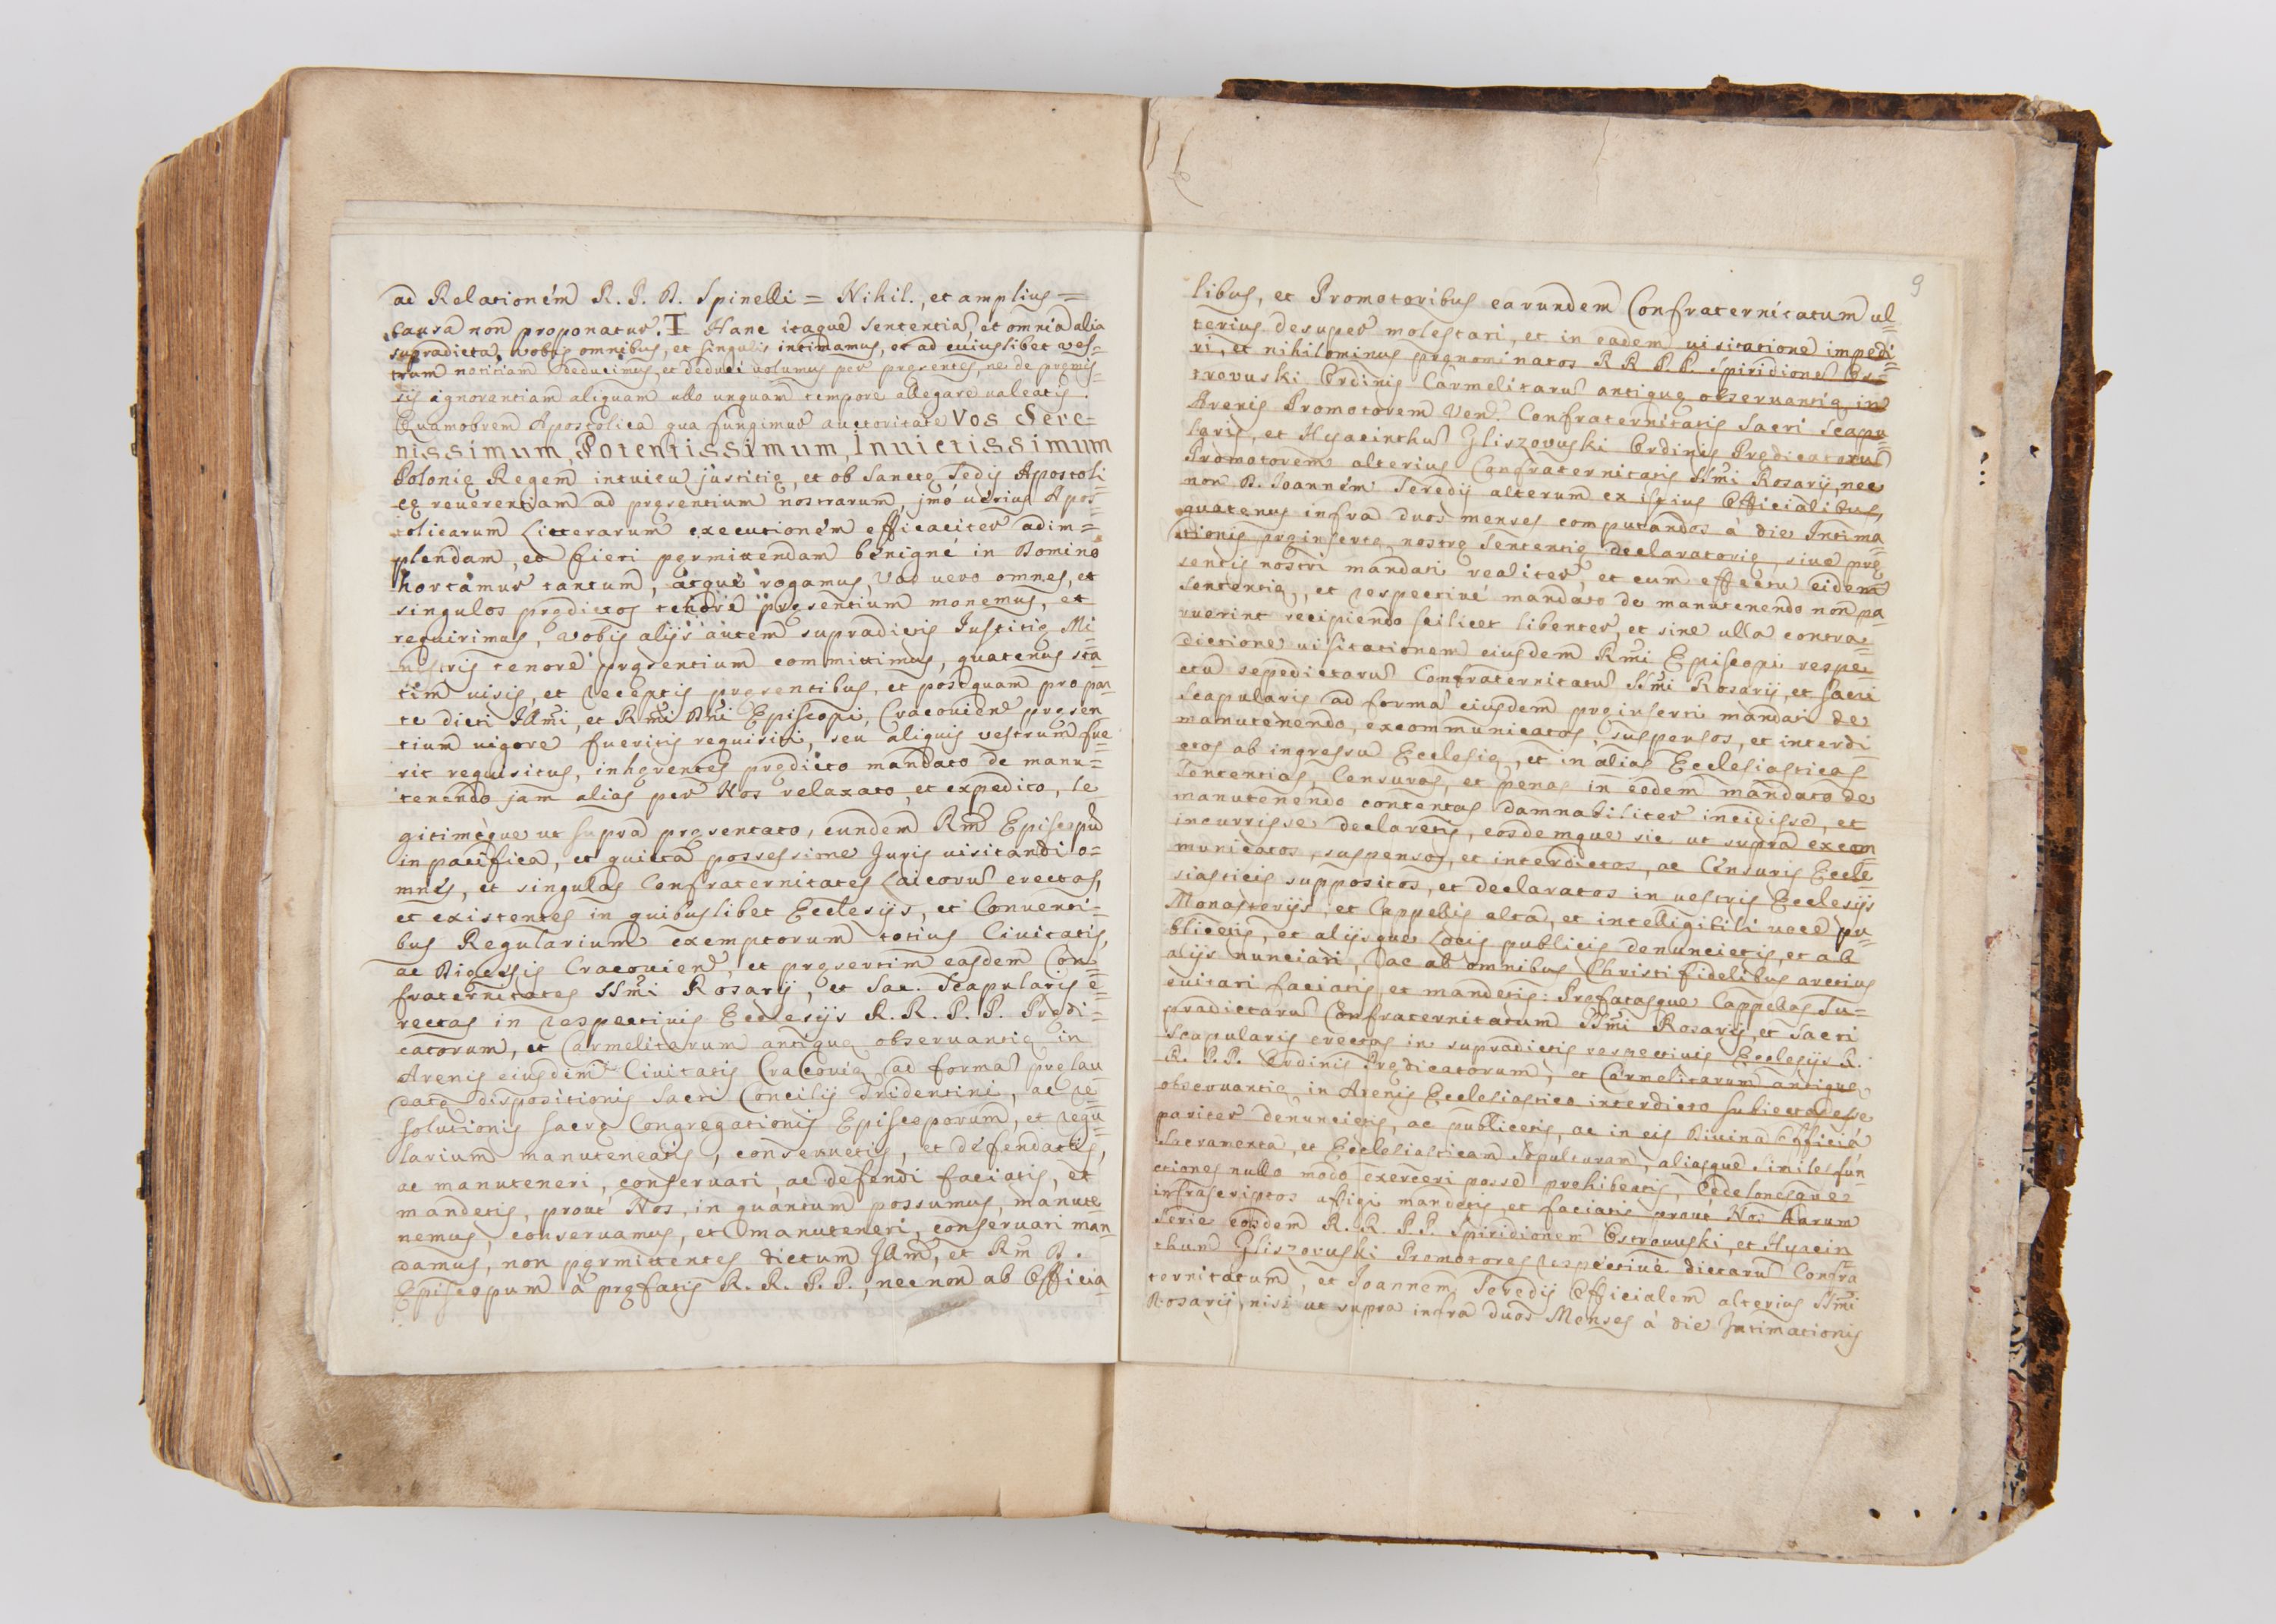 ad Relationem R. P. D. Spinelli = Nihil., et amplius =
Causa non proponatur. I Hanc itaque sententia, et omnia alia
supradicta, vobis omnibus, et singulis intimamus, et ad cuiuslibet ves=
trum notitiam deducimus, et deduci volumus per pręsentes, ne de pręmis=
sis ignorantiam aliquam ullo unquam tempore allegare valeatis.
Quamobrem Apostolica qua fungimur auctoritate Vos Sere=
nissimum, Potentissimum, Inuictissimum
Polonię Regem intuitu justitię, et ob Sanctę Sedis Apostoli
cę reuerentiam ad pręsentium nostrarum, jmò uerius Apos=
tolicarum Litterarum executioném efficaciter adim=
plendam, et fieri pęrmittendam bénigné in Domino
hortamur tantum, atque rogamus, Vos uero omnes, et
singulos prędictos tenore pręsentium monemus, et
requirimus, vobis alijs autem supradictis Iustitię Mi=
nistris tenore pręsentium committimus, quatenus sta=
tim uisis, et receptis pręsentibus, et postquam pro par=
te dicti Illmi, et Rmi Dni Episcopi, Cracouien pręsen
tium uigore fueritis requisiti, seu aliquis vestrum fue=
rit requisitus, inhęrentes prędicto mandato de manu=
tenendo jam alias per Nos relaxato, et expedito, le
gitimèque ut supra pręsentato, eundem Rmd Episcopu
in pacifica, et quieta possessione Juris uisitandi o=
mnes, et singulas Confraternitates Laicoru erectas,
et existentes in quibuslibet Ecclesijs, et Conuenti=
bus Regularium exemptorum totius Ciuitatis,
ac Diocesis Cracouien, et pręsertim easdem Con=
fraternitates SSmi Rosarij, et Sac. Scapularis e=
rectas in respectiuis Ecclesijs R. R. P. P. Prędi=
catorum, et Carmelitarum antiquę obseruantię in
Arenis eiusdem Ciuitatis Cracouię, ad forma pręlau
datę dispositionis Sacri Concilij Tridentini, ac re=
solutionis Sacrę Congregationis Episcoporum, et regu=
larium manuteneatis, conseruetis, et defendatis,
ac manuteneri, conseruari, ac defendi faciatis, et
mandetis, prout Nos, in quantum possumus, manute
nemus, conseruamus, et manuteneri, conseruari man=
damus, non pęrmittentes dictum Jllm, et Rm D.
Episcopum à pręfatis R. R. P. P., necnon ab Officia=
9
libus, et Promotoribus earundem Confraternitatum ul=
terius desuper molestari, et in eadem uisitatione impedi=
ri, et nihilominus pręnominatos R R. P. P. Spiridione Os=
trovuski Ordinis Carmelitaru antiquę obseruantię in
Arenis Promotorem Ven. Confraternitatis Sacri Scapu=
laris, et Hyacinthu Gliszovuski Ordinis Prędicatoru
Promotorem alterius Confraternitatis SSmi Rosarij, nec
non D. Joanném Seredij alterum ex istius Officialibus,
quatenus infra duos menses computandos à die Intima=
tionis pręinsertę nostrę Sententię declaratorię, siue prę
sentis nostri mandati realiter, et cum effectu eidem
Sententię, et respectiué mandato de manutenendo non pa
ruerint recipiendo scilicet libenter, et sine ulla contra=
dictione uisitationem eiusdem Rmi Episcopi respe=
ctu sepedictaru Confraternitatu SSmi Rosarij, et Sacri
Scapularis ad forma eiusdem pręinserti mandati de
manutenendo, excommunicatos, suspensos, et interdi
ctos ab ingressu Ecclesię, et in alias Ecclesiasticas
Sententias, Censuras, et penas in eodem mandato de
manutenendo contentas damnabiliter incidisse, et
incurrisse declaretis, eosdemque sic ut supra excom=
municatos, suspensos, et interdictos, ac Censuris Eccle=
siasticis suppositos, et declaratos in uestris Ecclesijs
Monasterijs, et Cappellis alta, et intelligibili uoce pu=
blicetis, et alijsque Locis publicis denuncietis, et ab
alijs nunciari, ac ab omnibus Christi fidelibus arctius
euitari faciatis, et mandetis: Pręfatasque Cappellas Su=
pradictaru Confraternitatum SSmi Rosarij, et Sacri
Scapularis erectas in supradictis respectiuis Ecclesijs R.
R. P. P. Ordinis Prędicatorum, et Carmelitarum antiquę
obseruantię in Arenis Ecclesiastico interdicto subiectas esse
pariter denuncietis, ac publicetis, ac in eis Diuina Officia
Sacramenta, et Ecclesiasticam Sepulturam, aliasque similes fún=
ctiones nullo modo exerceri posse prohibeatis, Cedulonesque
infrascriptos affigi mandetis, et faciatis prout Nos Harum
Serie eosdem R. R. P. P. Spiridionem Ostrouuski, et Hyacin
thum Gliszovuski Promotores respectiué dictaru Confra=
ternitatum, et Joannem Seredij Officialem alterius SSmi
Rosarij, nisi ut supra infra duos Menses à die Intimationis